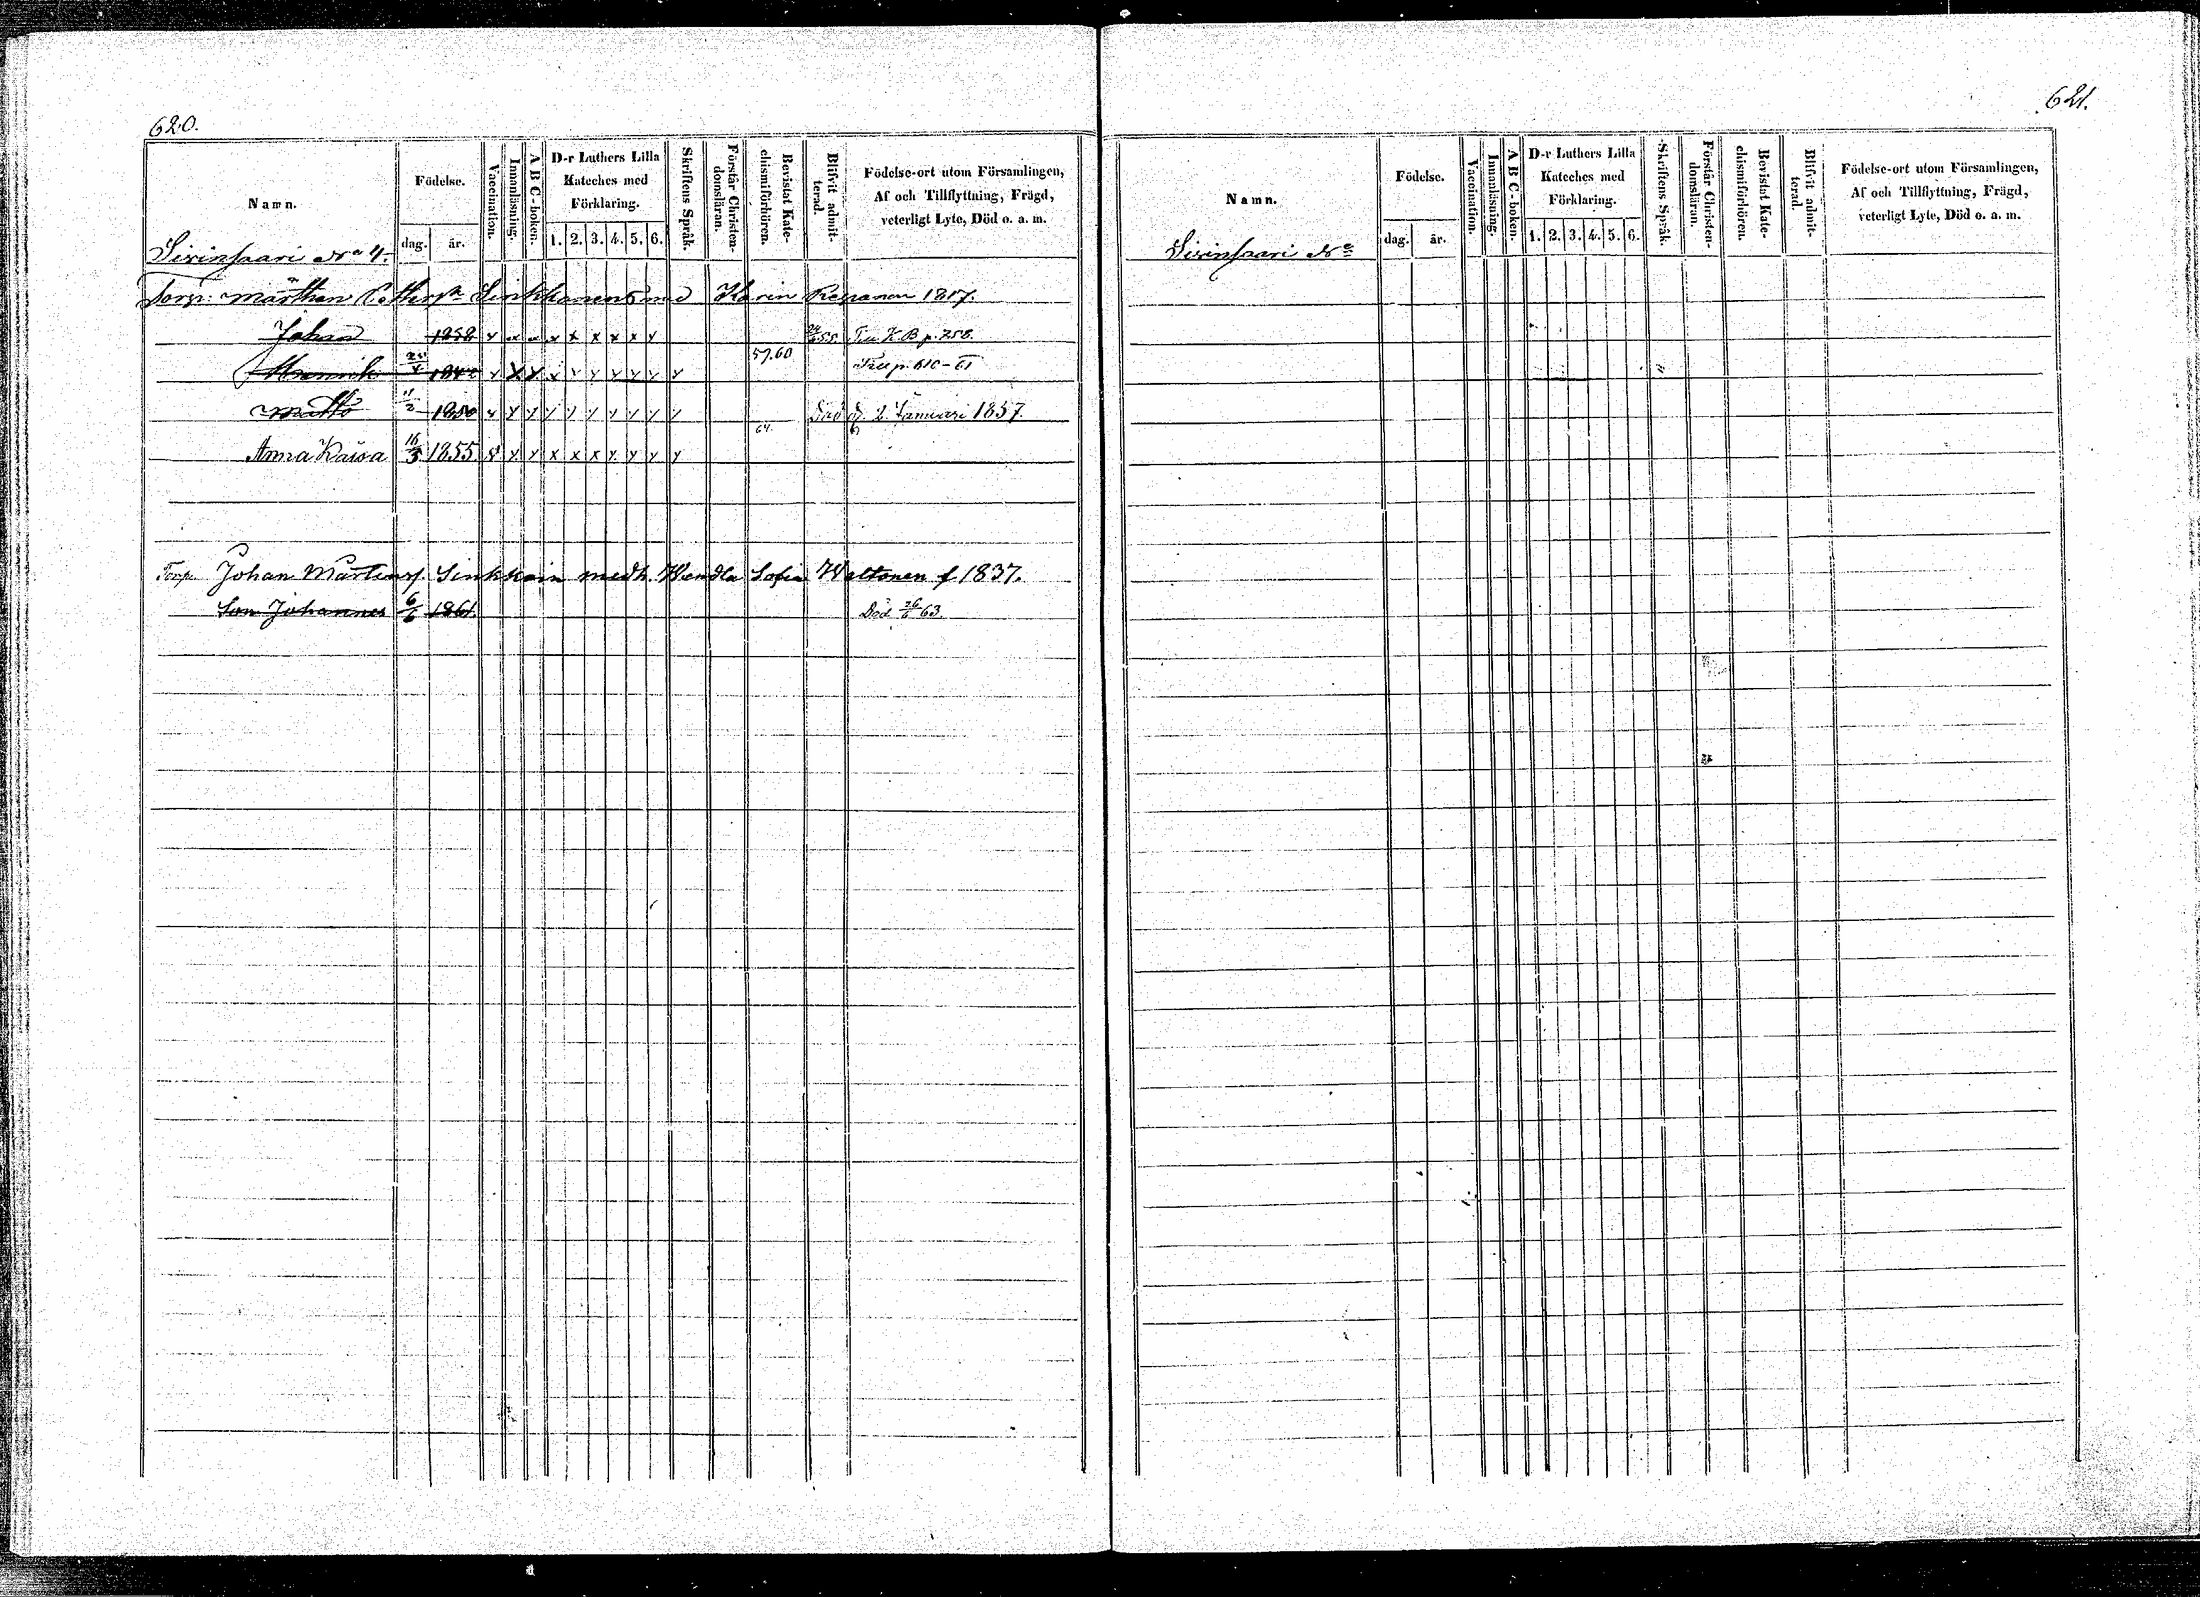 620.
Namn.
Födelse.
dag. år.
Vaccination.
Innanläsning.
A B C-boken.
D-r Luthers Lilla Kateches med Förklaring.
1. 2. 3. 4. 5. 6.
Skriftens Språk.
Förstår Christendomsläran.
Bevistat Katechismiförhören.
Blifvit admitterad.
Födelse-ort utom Församlingen,
Af och Tillflyttning, Frägd,
veterligt Lyte, Död o. a. m.
Sirinsaari No 4.
Torp. Mårthen Sinkkonens Karin 1817.
Johan x x x x x x x x Til K B p. 258.
57.60
x X x x x x x x x x p. 610-61
11/2 1850 x x x x x x x x x x Död d. 2 Januari 1857
64.
Anna Kaisa 16/3 1855. x x x x x x x x x x
Torp. Johan Mårtensf. Sinkkoin medh. Wendla Sofia Waltonen f. 1837.
Son Johannes 6/6 1861. Död 26/6 63.
621.
Namn.
Födelse.
dag. år.
Vaccination.
Innanläsning.
A B C-boken.
D-r Luthers Lilla Kateches med Förklaring.
1. 2. 3. 4. 5. 6.
Skriftens Språk.
Förstår Christendomsläran.
Bevistat Katechismiförhören.
Blifvit admitterad.
Födelse-ort utom Församlingen,
Af och Tillflyttning, Frägd,
veterligt Lyte, Död o. a. m.
Sirinsaari No